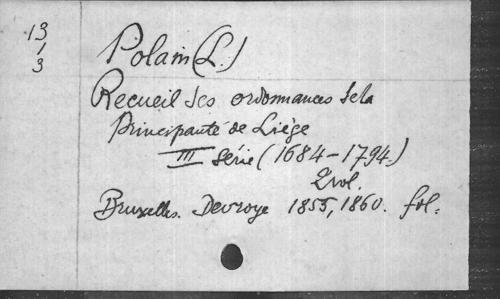 13
1
3
Polain (L.)
Recueil des ordonnances de la
Principauté de Liége
III série (1684-1794.)
2 vol.
Bruxelles. Devroye 1855, 1860. fol.